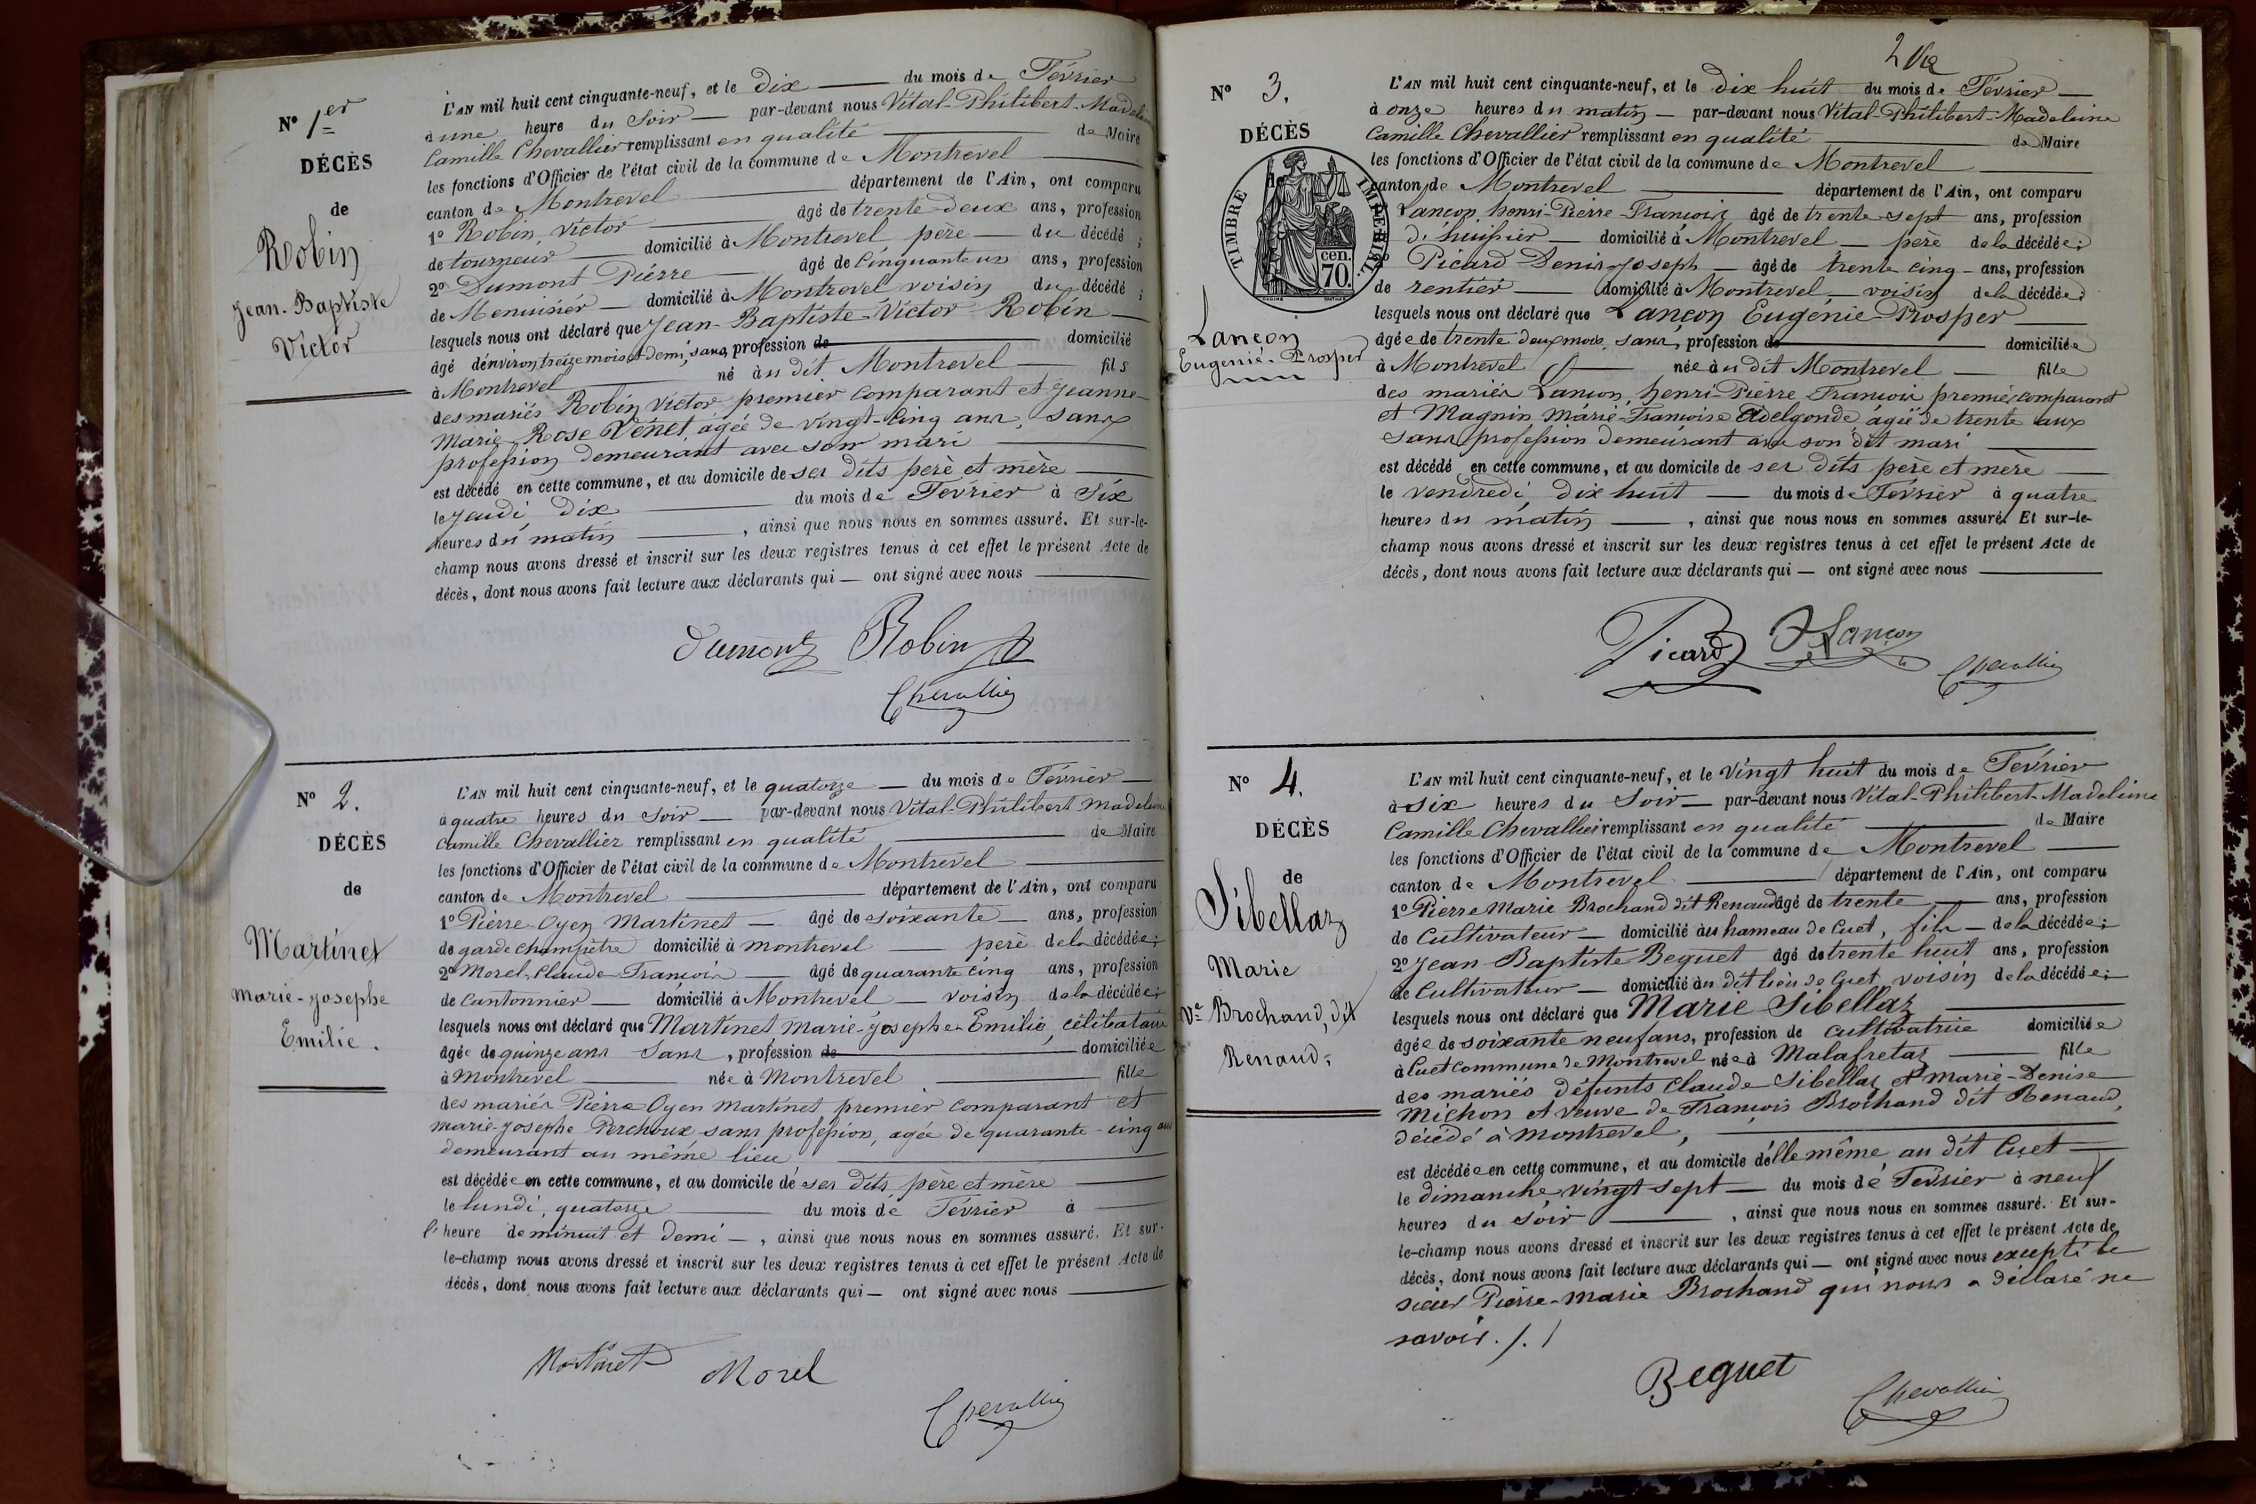 N° 1er
DÉCÈS
de
Robin
Jean-Baptiste
Victor
L'AN mil huit cent cinquante-neuf, et le dix du mois de Février
à une heure du Soir par-devant nous Vital-Philibert-Madeleine
Camille Chevallier remplissant en qualité de Maire
les fonctions d'Officier de l'état civil de la commune de Montrevel
canton de Montrevel département de l'Ain, ont comparu
1° Robin, Victor âgé de trente-deux ans, profession
de tourneur domicilié à Montrevel père du décédé ;
2° Dumont Pierre âgé de Cinquante un ans, profession
de Menuisier domicilié à Montrevel voisin du décédé ;
lesquels nous ont déclaré que Jean-Baptiste-Victor Robin
âgé d'environ treize mois et demi, sans, profession de domicilié
à Montrevel né au dit Montrevel fils
des mariés Robin Victor premier comparant et Jeanne-
Marie Rose Venet, agée de vingt-cinq ans, sans
profession demeurant avec son mari
est décédé en cette commune, et au domicile de ses dits père et mère
le jeudi dix du mois de Février à Six
heures du matin , ainsi que nous nous en sommes assuré. Et sur-le-
champ nous avons dressé et inscrit sur les deux registres tenus à cet effet le présent Acte de
décès, dont nous avons fait lecture aux déclarants qui — ont signé avec nous
Dumont Robin
Chevallier
N° 2.
DÉCÈS
de
Martinet
Marie-Josephe
Emilie.
L'AN mil huit cent cinquante-neuf, et le quatorze du mois de Février
à quatre heures du Soir par-devant nous Vital-Philibert Madeleine
Camille Chevallier remplissant en qualité de Maire
les fonctions d'Officier de l'état civil de la commune de Montrevel
canton de Montrevel département de l'Ain, ont comparu
1° Pierre Oyen Martinet âgé de soixante ans, profession
de garde champêtre domicilié à montrevel père de la décédée ;
2° Morel, Claude François âgé de quarante cinq ans, profession
de Cantonnier domicilié à Montrevel voisin de la décédée ;
lesquels nous ont déclaré que Martinet, Marie-Josephe Emilie, célibataire
âgée de quinze ans Sans, profession de domiciliée
à Montrevel née à Montrevel fille
des mariés Pierre Oyen Martinet premier comparant et
marie-Josephe Perchoux sans profession, agée de quarante-cinq ans
demeurant au même lieu
est décédée en cette commune, et au domicile de ses dits père et mère
le lundi, quatorze du mois de Février à
l'heure de minuit et demi , ainsi que nous nous en sommes assuré. Et sur-
le-champ nous avons dressé et inscrit sur les deux registres tenus à cet effet le présent Acte de
décès, dont nous avons fait lecture aux déclarants qui — ont signé avec nous
Martinet Morel
Chevallier
N° 3.
DÉCÈS
de
TIMBRE IMPÉRIAL
cen. 70.
Lançon
Eugenie-Prosper
L'AN mil huit cent cinquante-neuf, et le dix huit du mois de Février
à onze heures du matin par-devant nous Vital-Philibert-Madeleine
Camille Chevallier remplissant en qualité de Maire
les fonctions d'Officier de l'état civil de la commune de Montrevel
canton de Montrevel département de l'Ain, ont comparu
Lançon, henri-Pierre-François âgé de trente-sept ans, profession
d'huissier domicilié à Montrevel père de la décédée ;
Picard Denis-Joseph âgé de trente cinq ans, profession
de rentier domicilié à Montrevel voisin de la décédée ;
lesquels nous ont déclaré que Lançon Eugénie-Prosper
âgée de trente deux mois, sans, profession de domiciliée
à Montrevel née au dit Montrevel fille
des mariés Lançon, henri-Pierre-François premier comparant
et Magnin, Marie-Françoise Adelgonde âgée de trente aux
Sans profession demeurant avec son dit mari
est décédé en cette commune, et au domicile de ses dits père et mère
le vendredi, dix huit du mois de Février à quatre
heures du matin , ainsi que nous nous en sommes assuré. Et sur-le-
champ nous avons dressé et inscrit sur les deux registres tenus à cet effet le présent Acte de
décès, dont nous avons fait lecture aux déclarants qui — ont signé avec nous
Picard Lançon
Chevallier
N° 4.
DÉCÈS
de
Sibellaz
Marie
Ve Brochand, dit
Renaud.
L'AN mil huit cent cinquante-neuf, et le Vingt huit du mois de Février
à six heures du Soir par-devant nous Vital-Philibert-Madeleine
Camille Chevallier remplissant en qualité de Maire
les fonctions d'Officier de l'état civil de la commune de Montrevel
canton de Montrevel département de l'Ain, ont comparu
1° Pierre Marie Brochand dit Renaud âgé de trente ans, profession
de Cultivateur domicilié au hameau de Cuet, fils de la décédée ;
2° Jean Baptiste Beguet âgé de trente huit ans, profession
de Cultivateur domicilié au dit lieu de Cuet voisin de la décédée ;
lesquels nous ont déclaré que Marie Sibellaz
âgée de soixante neuf ans, profession de cultivatrice domiciliée
à Cuet commune de Montrevel née à Malafretaz fille
des mariés défunts Claude Sibellaz et Marie-Denise
Michon et veuve de François Brochand dit Renaud,
décédé à Montrevel,
est décédée en cette commune, et au domicile d'elle même au dit Cuet
le dimanche vingt sept du mois de Février à neuf
heures du Soir , ainsi que nous nous en sommes assuré. Et sur-
le-champ nous avons dressé et inscrit sur les deux registres tenus à cet effet le présent Acte de
décès, dont nous avons fait lecture aux déclarants qui — ont signé avec nous excepté le
sieur Pierre-Marie Brochand qui nous a déclaré ne
savoir. /. /
Beguet
Chevallier